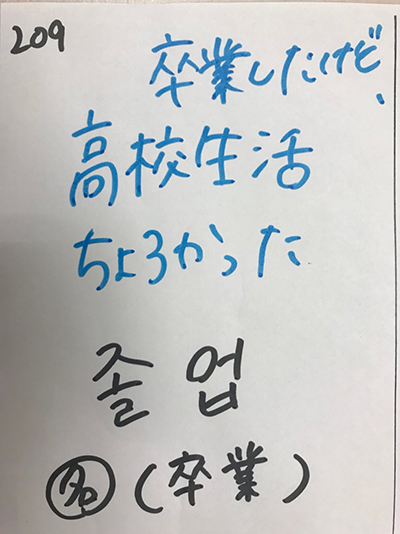 209
卒業したけど、
高校生活
ちょろかった
졸업
名(卒業)